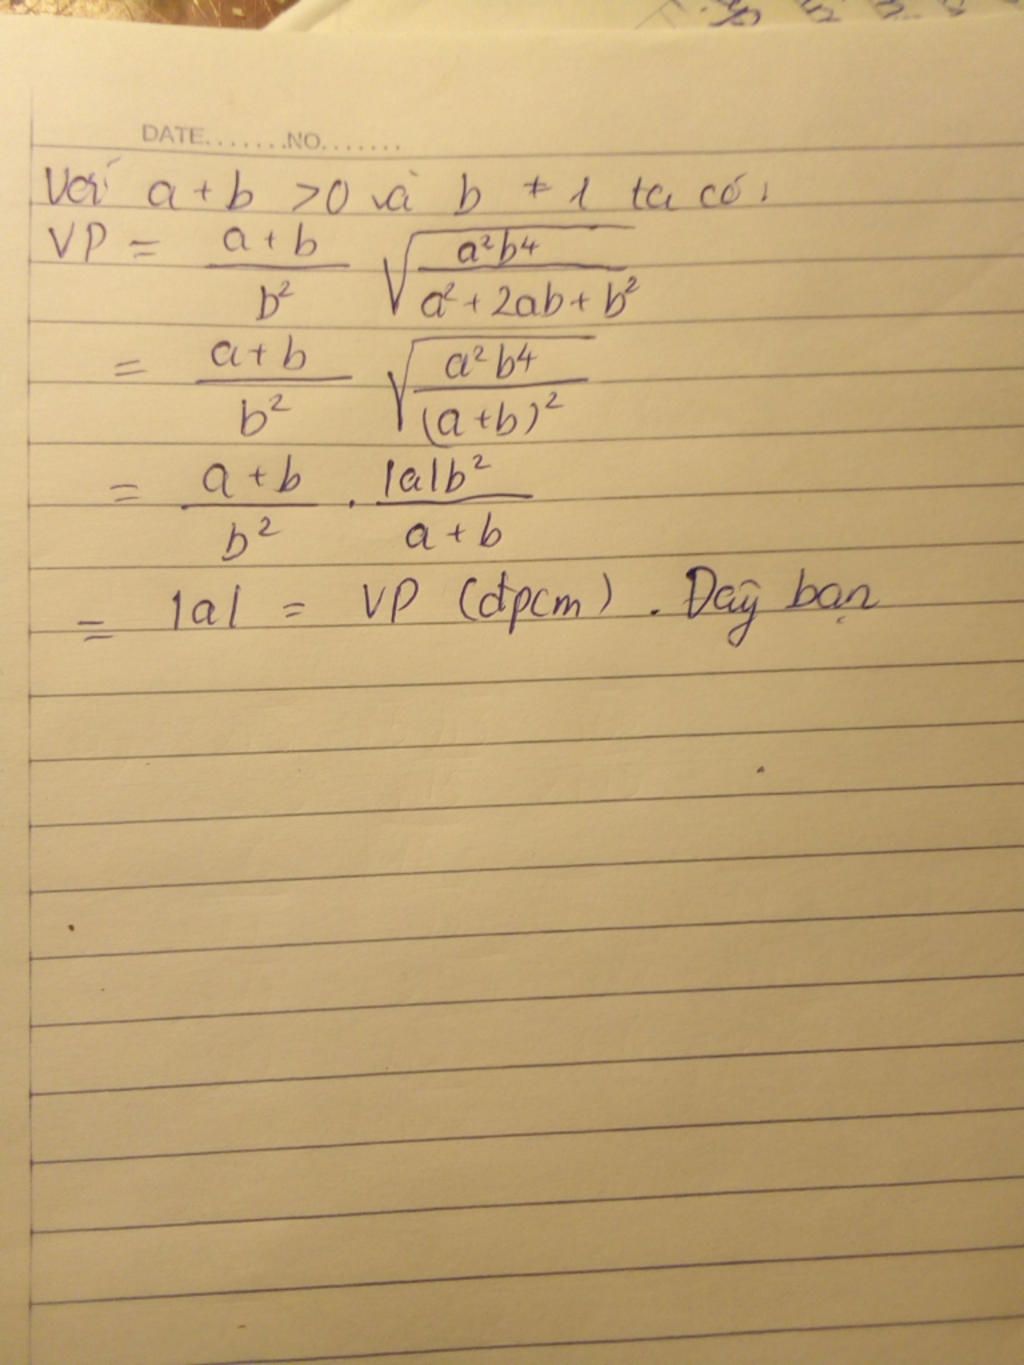 DATE.......NO.......
Với a + b > 0 và b ≠ 1 ta có:
VP = \frac{a + b}{b²} \sqrt{\frac{a²b⁴}{a² + 2ab + b²}}
= \frac{a + b}{b²} \sqrt{\frac{a²b⁴}{(a + b)²}}
= \frac{a + b}{b²} . \frac{|a|b²}{a + b}
= |a| = VP (đpcm) . Đaỹ bạn